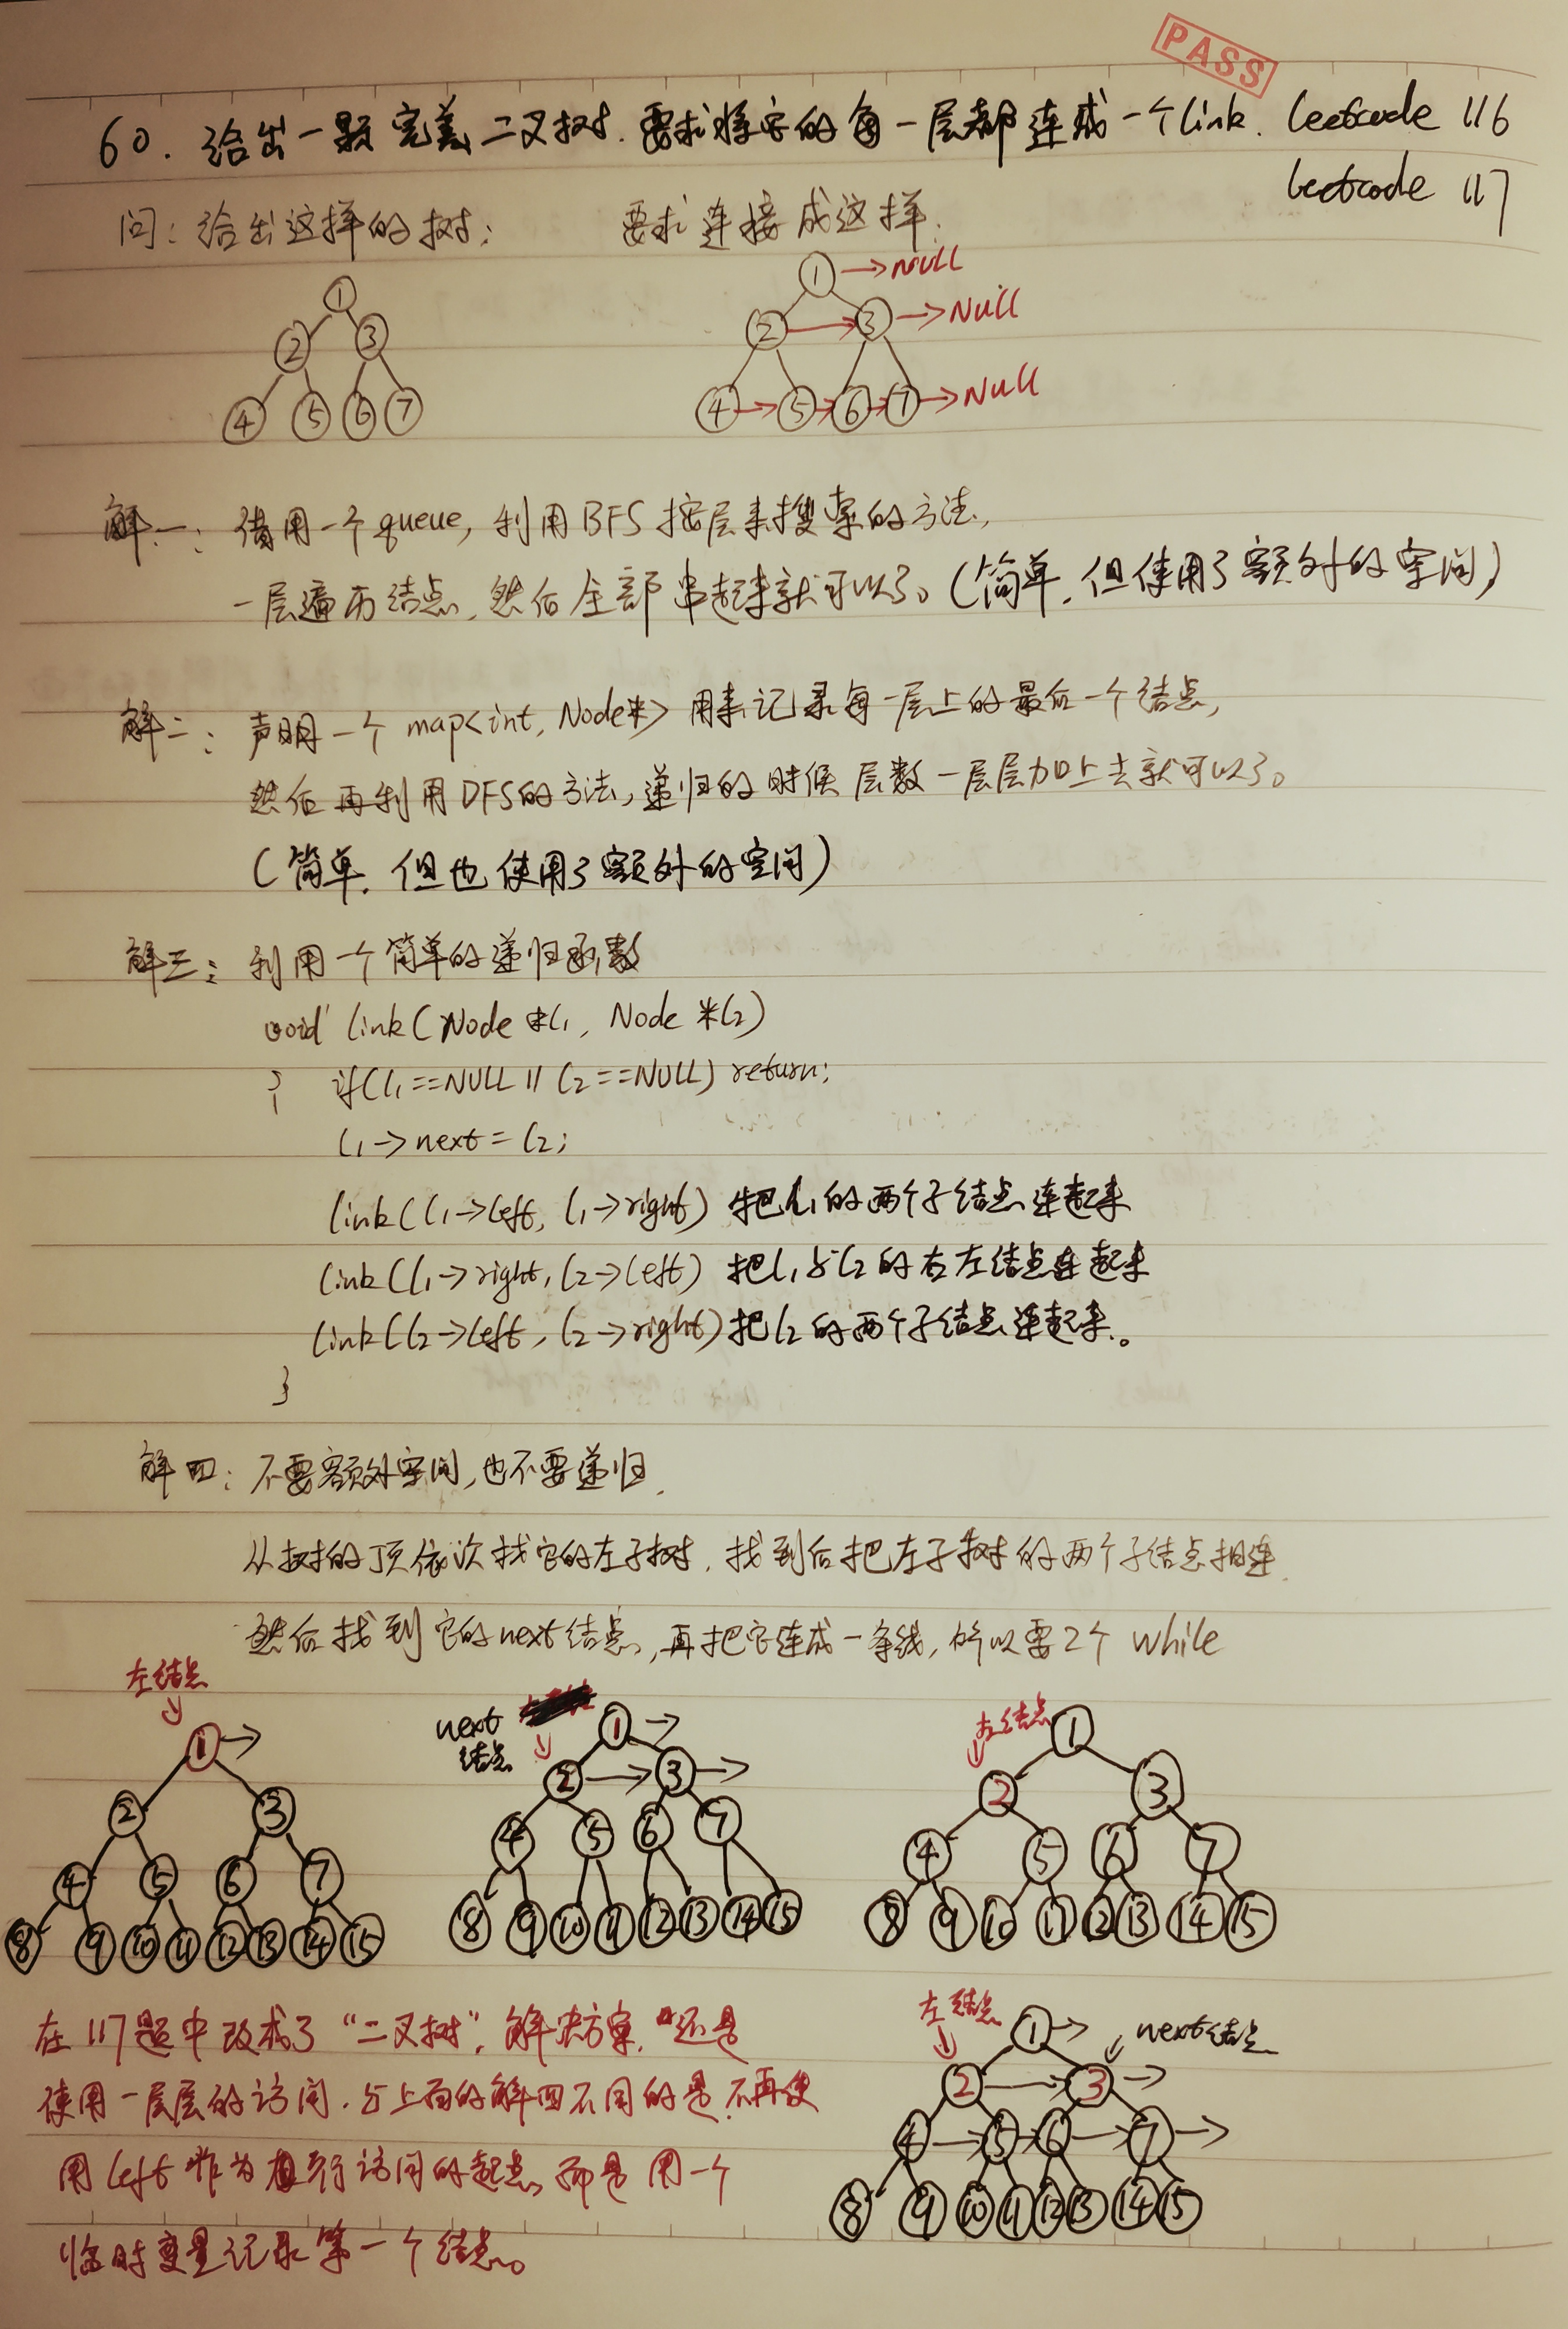 PASS
60. 给出一颗完美二叉树. 要求将它的每一层都连成一个link. leetcode 116
leetcode 117
问: 给出这样的树: 要求连接成这样:
1
2 3
4 5 6 7
1 → NULL
2 → 3 → NULL
4 → 5 → 6 → 7 → NULL
解一: 借用一个queue, 利用BFS按层来搜索的方法,
一层遍历结点, 然后全部串起来就可以了。(简单, 但使用了额外的空间)
解二: 声明一个 map<int, Node*> 用来记录每一层上的最后一个结点,
然后再利用DFS的方法, 递归的时候层数一层层加上去就可以了。
(简单, 但也使用了额外的空间)
解三: 利用一个简单的递归函数
void link(Node *l1, Node *l2)
{ if(l1==NULL || l2==NULL) return;
l1->next = l2;
link(l1->left, l1->right) 把l1的两个子结点连起来
link(l1->right, l2->left) 把l1与l2的右左结点连起来
link(l2->left, l2->right) 把l2的两个子结点连起来。
}
解四: 不要额外空间, 也不要递归.
从树的顶依次找它的左子树, 找到后把左子树的两个子结点相连.
然后找到它的next结点, 再把它连成一条线, 所以要2个 while
左结点
1 →
2 3
4 5 6 7
8 9 10 11 12 13 14 15
next
结点
1 →
2 → 3 →
4 5 6 7
8 9 10 11 12 13 14 15
左结点
1
2 3
4 5 6 7
8 9 10 11 12 13 14 15
在117题中改成了“二叉树”, 解决方案, 还是
使用一层层的访问. 与上面的解四不同的是, 不再使
用left作为每行访问的起点, 而是用一个
临时变量记录第一个结点。
左结点
1 → next结点
2 → 3 →
4 → 5 → 6 → 7 →
8 9 10 11 12 13 14 15